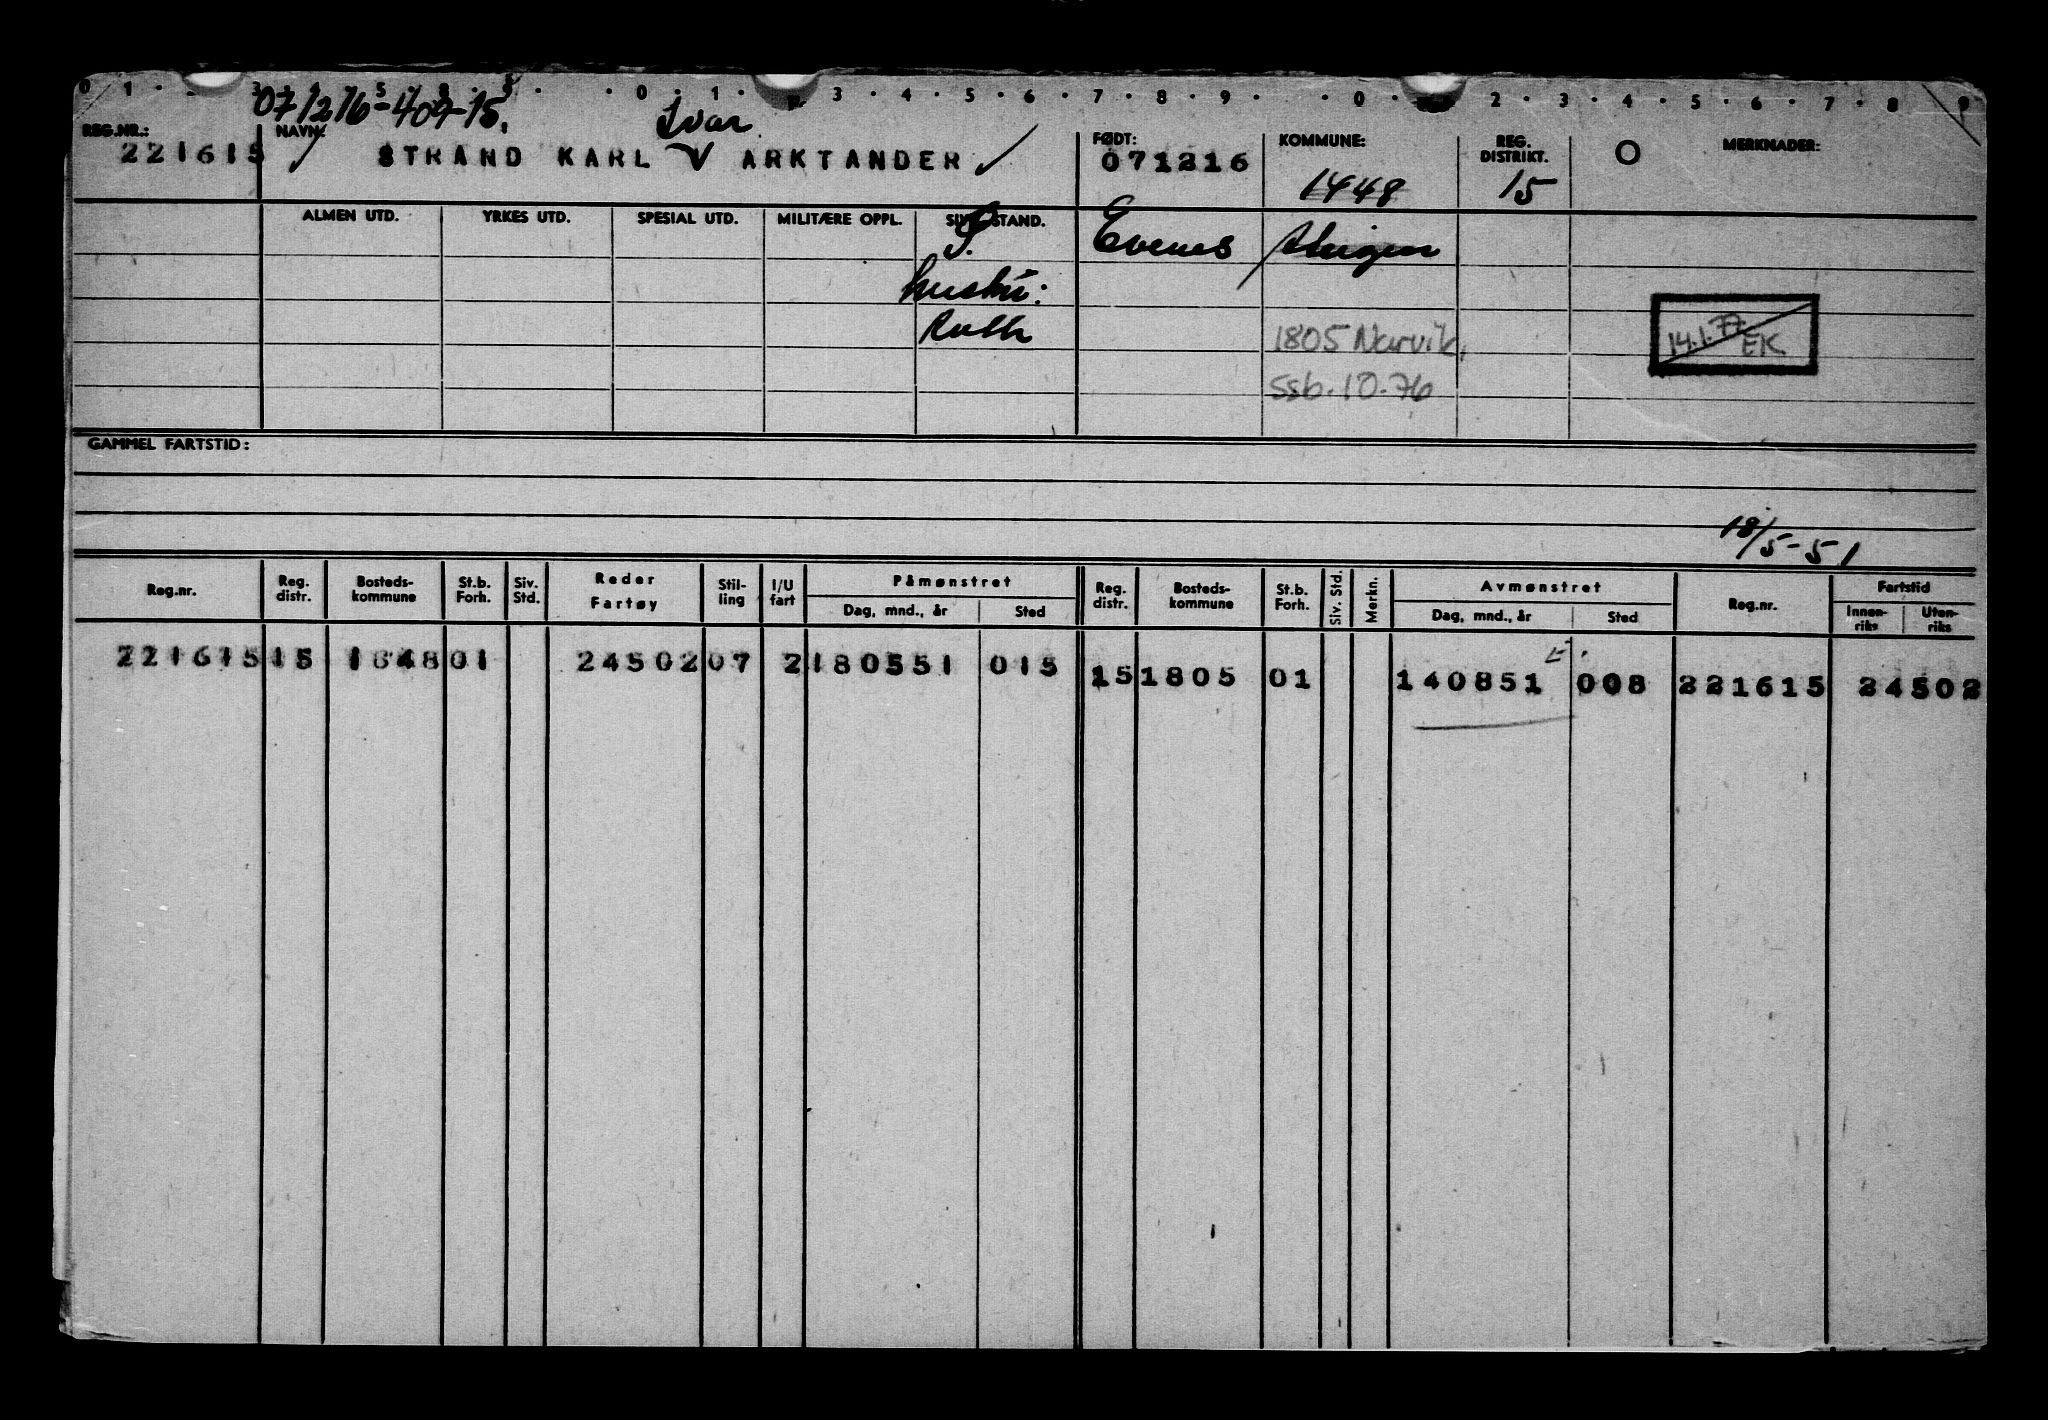 0 1 3 5 0 1 3 4 5 6 7 8 9 0 2 3 4 5 6 7 8 9
071216-409-15.
Ivar
REG.NR.: NAVN: FØDT: KOMMUNE: REG. DISTRIKT. O MERKNADER:
221615 STRAND KARL V ARKTANDER 071216 1448 15
ALMEN UTD. YRKES UTD. SPESIAL UTD. MILITÆRE OPPL. SIV. STAND.
Evenes
hustru:
Ruth
1805 Narvik.
14.1.77 EK
Ssb. 10.76
GAMMEL FARTSTID:
18/5-51
Reg.nr. Reg. distr. Bosteds-kommune St.b. Forh. Siv. Std. Reder Fartøy Stil-ling I/U fart Påmønstret Reg. distr. Bosteds-kommune St.b. Forh. Siv. Std. Merkn. Avmønstret Reg.nr. Fartstid
Dag, mnd., år Sted Dag, mnd., år Sted Innen-riks Uten-riks
221615 15 1848 01 24502 07 2 180551 015 15 1805 01 140851 008 221615 24502